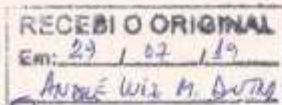 RECEBI O ORIGINAL
Em: 29 / 07 / 19
ANDRÉ LUIZ M. DUTRA